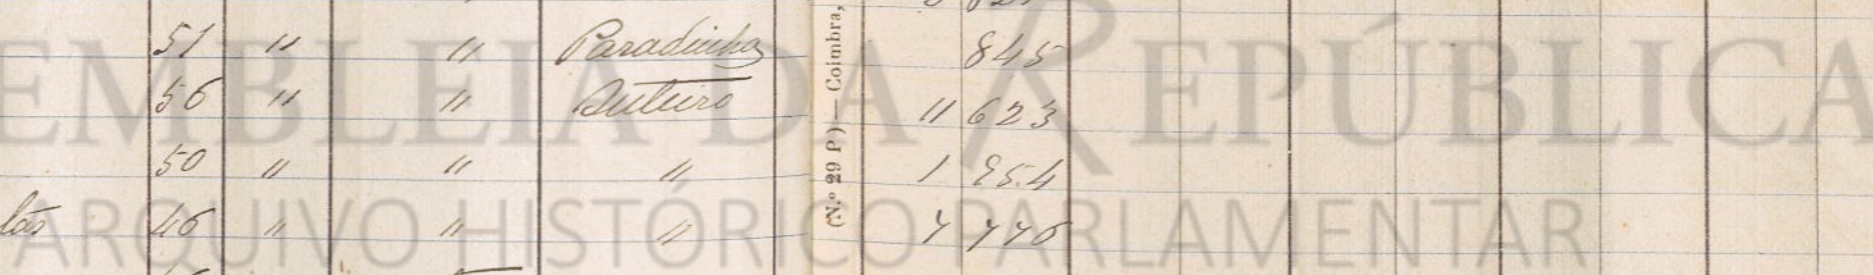 51 " " Paradinha 845
56 " " Outeiro 11 623
50 " " " 1 954
lãs 46 " " " 7 776
(N.º 29 P) — Coimbra,
EMBLEIA DA REPÚBLICA
ARQUIVO HISTÓRICO PARLAMENTAR